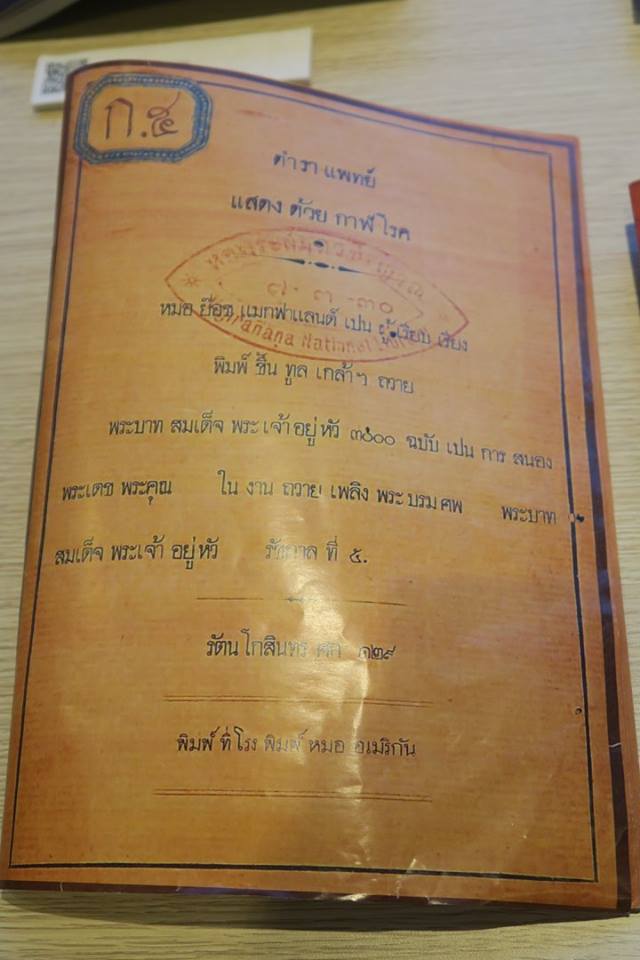 ก.๕
ตำรา แพทย์
แสดง ด้วย กาฬโรค
หอพระสมุดวชิรญาณ
๘-๓-๓๐
Vajirañana National Library
หมอ ย๊อช แมกฟาแลนด์ เปน ผู้เรียบ เรียง
พิมพ์ ขึ้น ทูล เกล้าฯ ถวาย
พระบาท สมเด็จ พระเจ้าอยู่หัว ๓๐๐๐ ฉบับ เปน การ สนอง
พระเดช พระคุณ ใน งาน ถวาย เพลิง พระบรมศพ พระบาท
สมเด็จ พระเจ้า อยู่หัว รัชกาล ที่ ๕.
รัตนโกสินทร ศก ๑๒๙
พิมพ์ ที่โรง พิมพ์ หมอ อเมริกัน